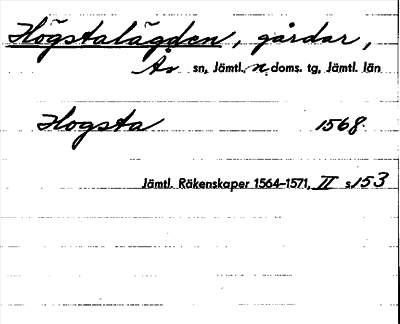 Högstalägden, gårdar,
As sn, Jämtl. n. doms. tg, Jämtl. län
Hogsta 1568.
Jämtl. Räkenskaper 1564–1571, II s 153